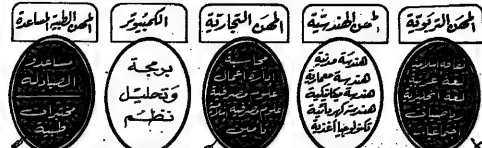 المهن التربوية
ثقافة اسلامية
لغة عربية
لغة انجليزية
رياضيات
اجتماعيات
المهن الهندسية
هندسة مدنية
هندسة معمارية
هندسة ميكانيكية
هندسة كهربائية
تكنولوجيا أغذية
المهن التجارية
محاسبة
إدارة أعمال
علوم مصرفية
علوم مصرفية إسلامية
تأمين
الكمبيوتر
برمجة
وتحليل
نظم
المهن الطبية المساعدة
مساعدو
الصيادلة
مختبرات
طبية